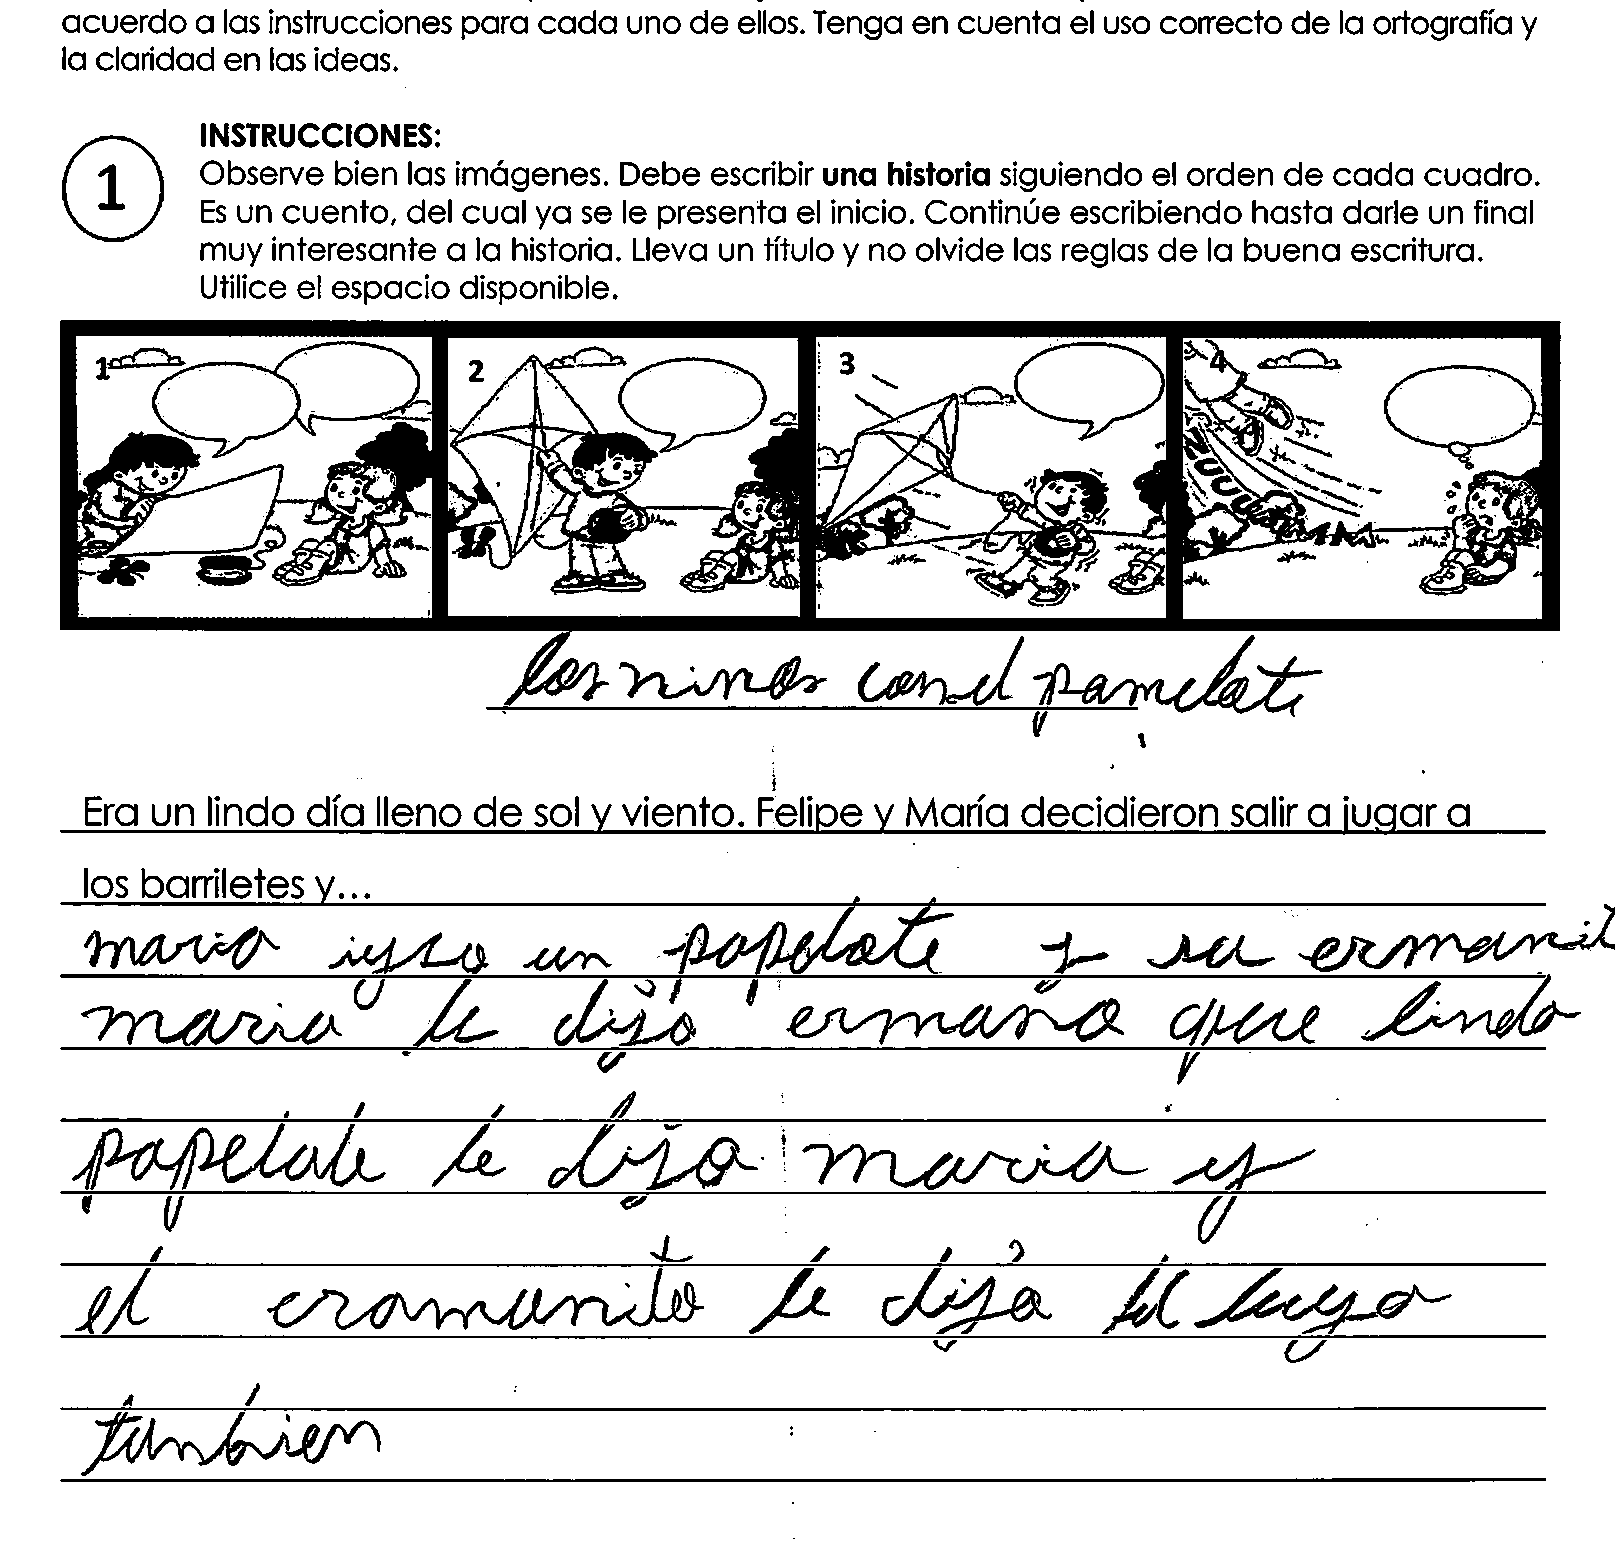 acuerdo a las instrucciones para cada uno de ellos. Tenga en cuenta el uso correcto de la ortografía y
la claridad en las ideas.
1
INSTRUCCIONES:
Observe bien las imágenes. Debe escribir una historia siguiendo el orden de cada cuadro.
Es un cuento, del cual ya se le presenta el inicio. Continúe escribiendo hasta darle un final
muy interesante a la historia. Lleva un título y no olvide las reglas de la buena escritura.
Utilice el espacio disponible.
1 2 3 4
los ninos con el pamelote
Era un lindo día lleno de sol y viento. Felipe y María decidieron salir a jugar a
los barriletes y...
maria iyso un papelote y su ermanit
maria le dijo ermano que lindo
papelote le dijo maria y
el eramanito le dijo el tuyo
tanbien